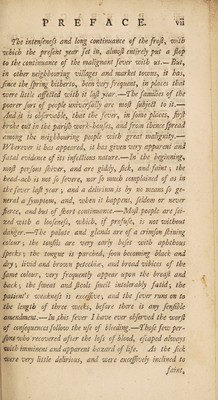 PREFACE. vii
The intenseness and long continuance of the frost, with
which the present year set in, almost entirely put a stop
to the continuance of the malignant fever with us.—But,
in other neighbouring villages and market towns, it has,
since the spring hitherto, been very frequent, in places that
were little affected with it last year.—The families of the
poorer sort of people universally are most subject to it.—
And it is observable, that the fever, in some places, first
broke out in the parish work-houses, and from thence spread
among the neighbouring people with great malignity.—
Wherever it has appeared, it has given very apparent and
fatal evidence of its infectious nature.—In the beginning,
most persons shiver, and are giddy, sick, and faint; the
head-ach is not so severe, nor so much complained of as in
the fever last year; and a delirium is by no means so ge-
neral a symptom, and, when it happens, seldom or never
fierce, and but of short continuance.—Most people are sei-
zed with a looseness, which, if profuse, is not without
danger.—The palate and glands are of a crimson shining
colour; the tonsils are very early beset with aphthous
specks; the tongue is parched, soon becoming black and
dry; livid and brown petechiæ, and broad vibices of the
same colour, very frequently appear upon the breast and
back; the sweat and stools smell intolerably fœtid; the
patient's weakness is excessive; and the fever runs on to
the length of three weeks, before there is any sensible
amendment.—In this fever I have ever observed the worst
of consequences follow the use of bleeding.—Those few per-
sons who recovered after the loss of blood, escaped always
with imminent and apparent hazard of life. As the sick
were very little delirious, and were excessively inclined to
faint,